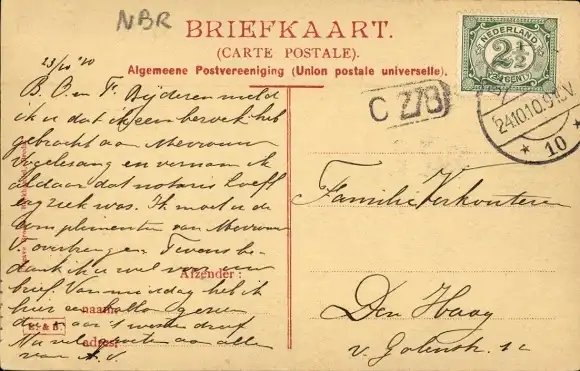 NBR
BRIEFKAART.
(CARTE POSTALE).
Algemeene Postvereeniging (Union postale universelle).
NEDERLAND
2½
CENT
24.10.10.9
10
C Z/8
23/10 '10
B. O. en F. Bijderen meld
ik u dat ik een bezoek heb
gebracht aan Mevrouw
Vogelesang en vernam ik
aldaar dat notaris hoeft
erg ziek was. Ik moet u de
complimenten van Mevrouw
V. overbrengen Tevens be-
dank ik u wel voor uw
brief. Van middag heb ik
hier een ballon gezien
die naar 't westen dreef
Nu vele groeten aan allen
van A. V.
Afzender:
naam
adres
E. & B.
Familie Verkouteren
Den Haag
v. Galenstr. 12